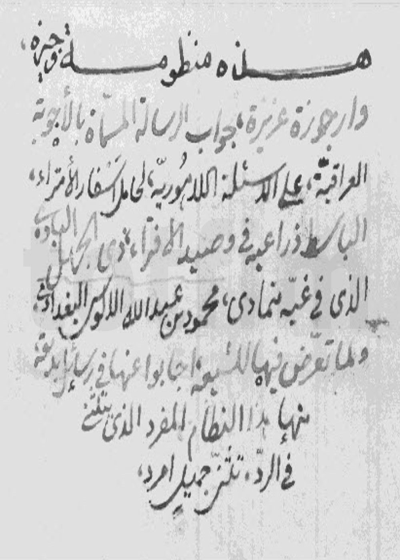 هذه منظومة وجيزه،
وارجوزة عزيزة، جواب الرسالة المسمّاة بالأجوبة
العراقيّة، على الاسئلة اللاهوريّة، لحامل اسفار الأمتراء،
الباسط ذراعيه فى وصيد الافتراء، ذى الجهل البادى
الذى فى غيّه يتمادى، محمود بن عبدالله الالوسى البغدادى
ولما تعرّض فيها للشيعة اجابوا عنها فى رسايل بديعة
منها هذا النظام المفرد الذى
فى الردّ، جميل امرد،